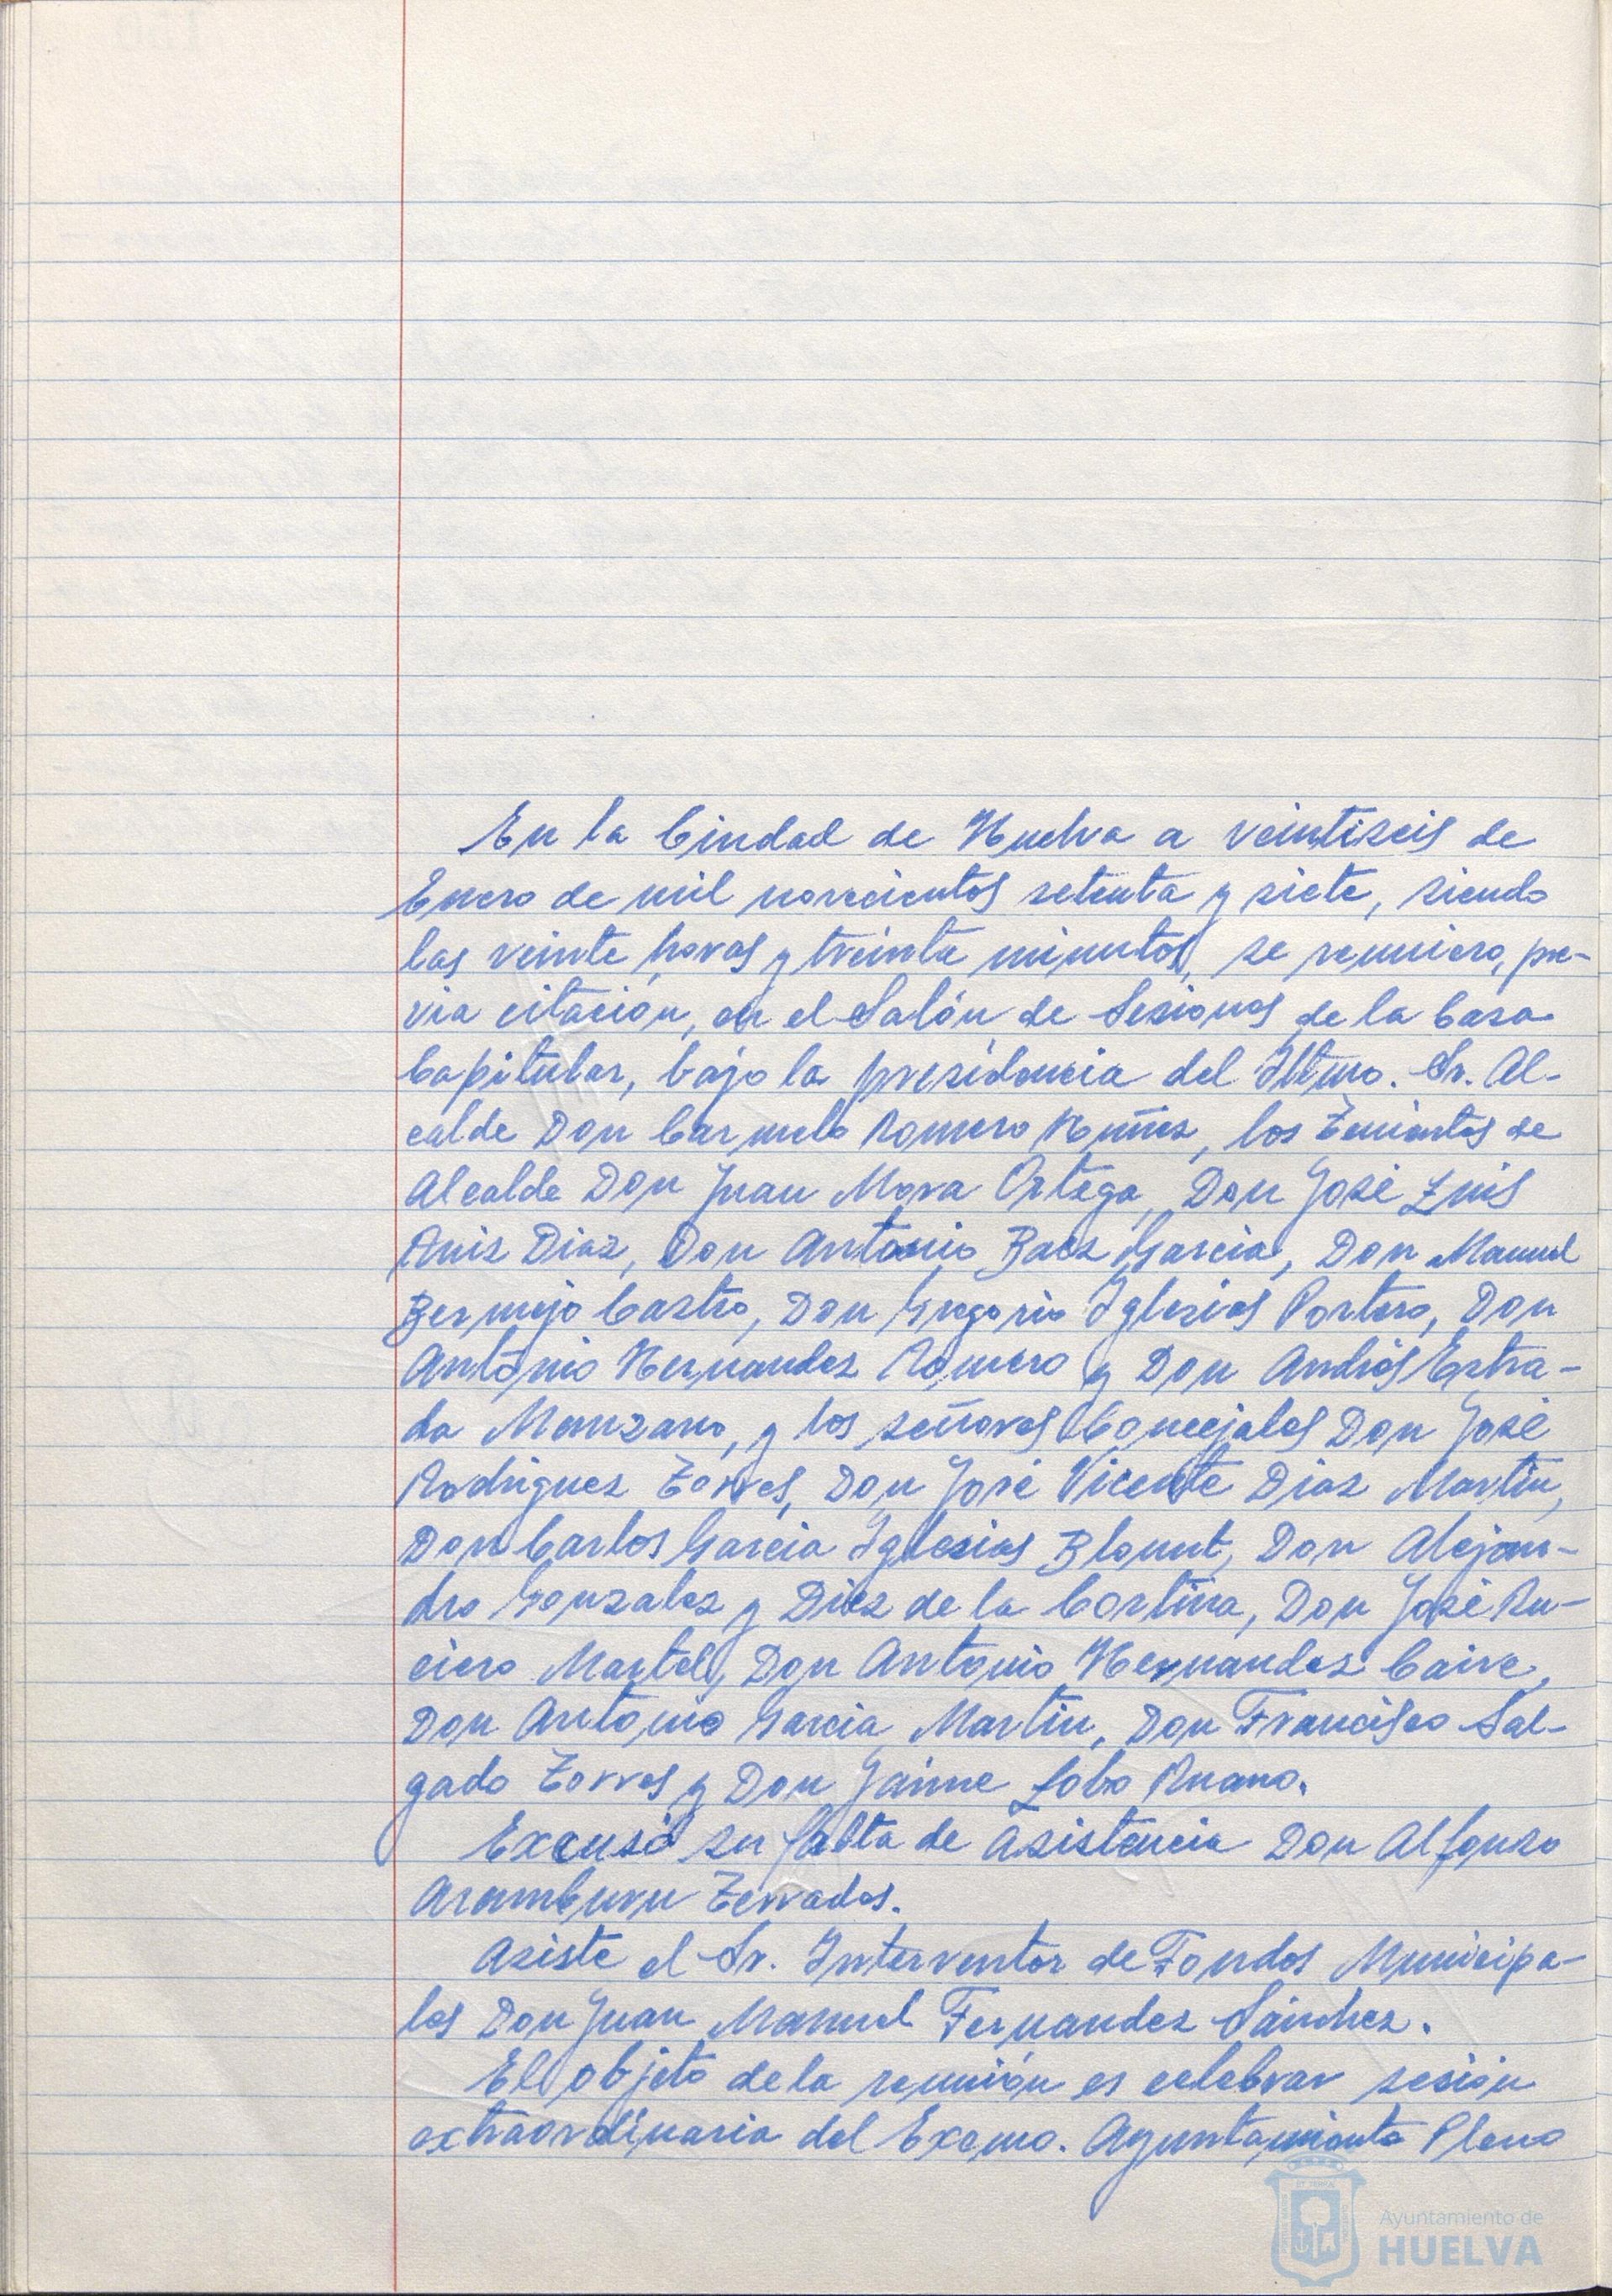 En la Ciudad de Huelva a veintiseis de
Enero de mil novecientos setenta y siete, siendo
las veinte horas y treinta minutos, se reuniero, pre-
via citación, en el Salón de Sesiones de la Casa
Capitular, bajo la presidencia del Iltmo. Sr. Al-
calde Don Carmelo Romero Núñez, los Tenientes de
Alcalde Don Juan Mora Ortega, Don José Luis
Ruiz Diaz, Don Antonio Baez Garcia, Don Manuel
Bermejo Castro, Don Gregorio Iglesias Portero, Don
Antonio Hernandez Romero y Don Andrés Estra-
da Manzano, y los señores Concejales Don José
Rodriguez Torres, Don José Vicente Diaz Martin,
Don Carlos Garcia Iglesias Blount, Don Alejan-
dro Gonzalez y Diez de la Cortina, Don José Ru-
ciero Martel, Don Antonio Hernandez Caire,
Don Antonio Garcia Martin, Don Francisco Sal-
gado Torres y Don Jaime Lobo Ruano.
Excusó su falta de asistencia Don Alfonso
Aramburu Terrados.
Asiste el Sr. Interventor de Fondos Municipa-
les Don Juan Manuel Fernandez Sánchez.
El objeto de la reunión es celebrar sesión
extraordinaria del Excmo. Ayuntamiento Pleno
Ayuntamiento de
HUELVA